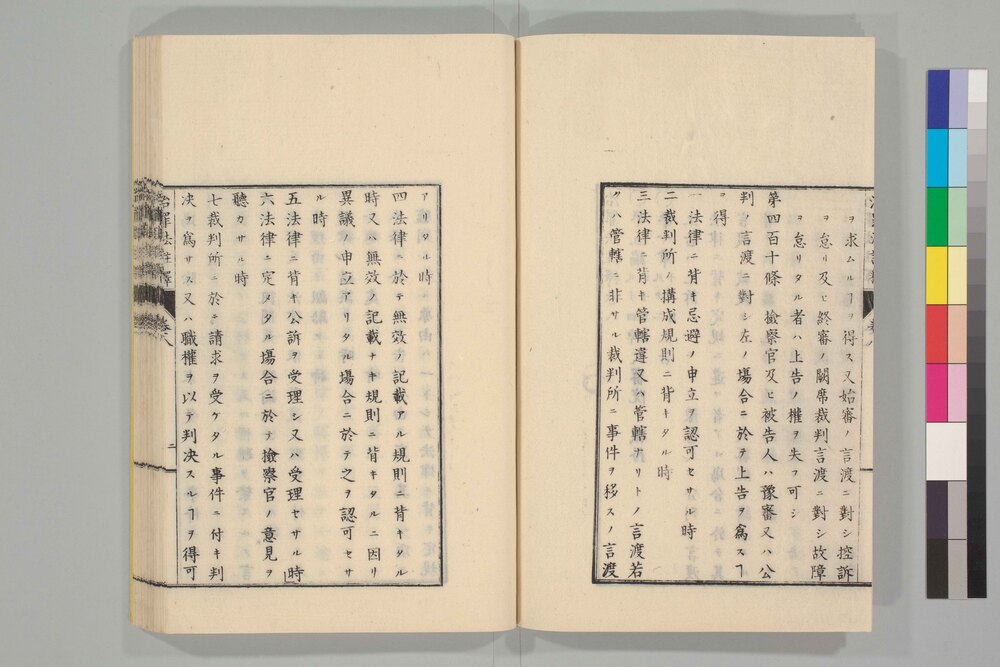 ヲ求ムルヿヲ得ス又始審ノ言渡ニ對シ控訴
ヲ怠リ及ヒ終審ノ闕席裁判言渡ニ對シ故障
ヲ怠リタル者ハ上告ノ權ヲ失フ可シ
第四百十條 撿察官及ヒ被告人ハ豫審又ハ公
判ノ言渡ニ對シ左ノ塲合ニ於テ上告ヲ爲スヿ
ヲ得
一 法律ニ背キ忌避ノ申立ヲ認可セサル時
二 裁判所ノ搆成規則ニ背キタル時
三 法律ニ背キ管轄違又ハ管轄ナリトノ言渡若
クハ管轄ニ非サル裁判所ニ事件ヲ移スノ言渡
アリタル時
四 法律ニ於テ無效ヲ記載アル規則ニ背キタル
時又ハ無效ノ記載ナキ規則ニ背キタルニ因リ
異議ノ申立アリタル塲合ニ於テ之ヲ認可セサ
ル時
五 法律ニ背キ公訴ヲ受理シ又ハ受理セサル時
六 法律ニ定メタル塲合ニ於テ撿察官ノ意見ヲ
聽カサル時
七 裁判所ニ於テ請求ヲ受ケタル事件ニ付キ判
决ヲ爲サス又ハ職權ヲ以テ判决スルヿヲ得可
治罪法註釋 卷八 二